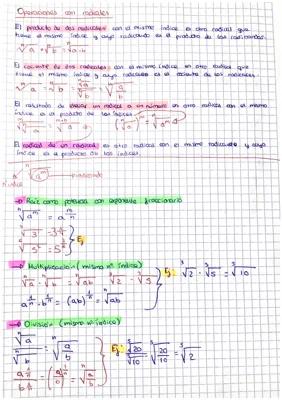 Operaciones con radicales
El producto de dos radicales con el mismo índice es otro radical que
tiene el mismo índice y cuyo radicando es el producto de los radicandos.
ⁿ√a · ⁿ√b = ⁿ√a·b
El cociente de dos radicales con el mismo índice es otro radical que
tiene el mismo índice y cuyo radicando es el cociente de los radicandos
El resultado de elevar un radical a un número es otro radical con el mismo
índice es el producto de los índices
El radical de un radical es otro radical con el mismo radicando y cuyo
índice es el producto de los índices.
ⁿ√aᵐ → radicando
índice
→ Raíz como potencia con exponente fraccionario
ⁿ√aᵐ = a^(m/n)
Ej
→ Multiplicación (mismo nº índice)
ⁿ√a · ⁿ√b = ⁿ√ab ³√2 · ³√5 Ej: ³√2 · ³√5 = ³√10
a^(1/n) · b^(1/n) = (ab)^(1/n) = ⁿ√ab
→ División (mismo nº índice)
ⁿ√a / ⁿ√b = ⁿ√(a/b) Ej: ³√20 / ³√10 ³√(20/10) = ³√2
a^(1/n) / b^(1/n) = (a/b)^(1/n) = ⁿ√(a/b)